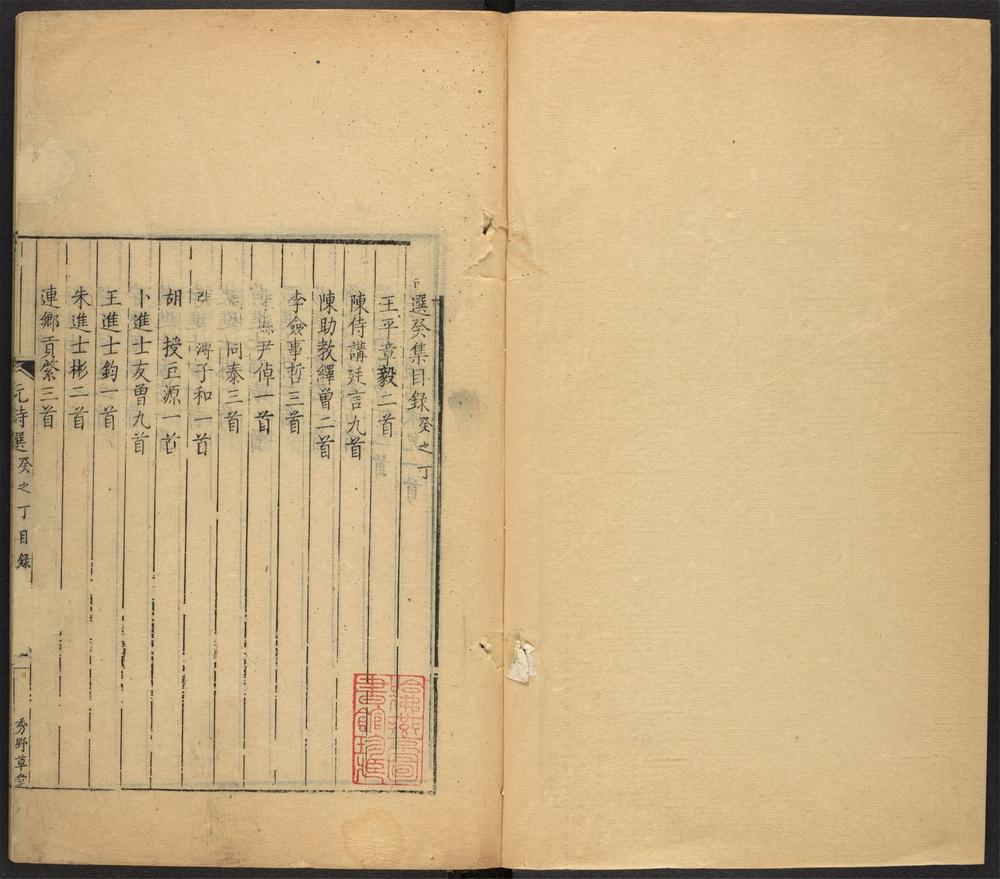 選癸集目錄癸之丁
王平章毅二首
陳侍講廷言九首
陳助教繹曾二首
李僉事哲三首
縣尹倬一首
同泰三首
漙子和一首
胡 授巨源一首
卜進士友曾九首
王進士鈞一首
朱進士彬二首
連鄉貢縈三首
元詩選癸之丁目錄
秀野草堂